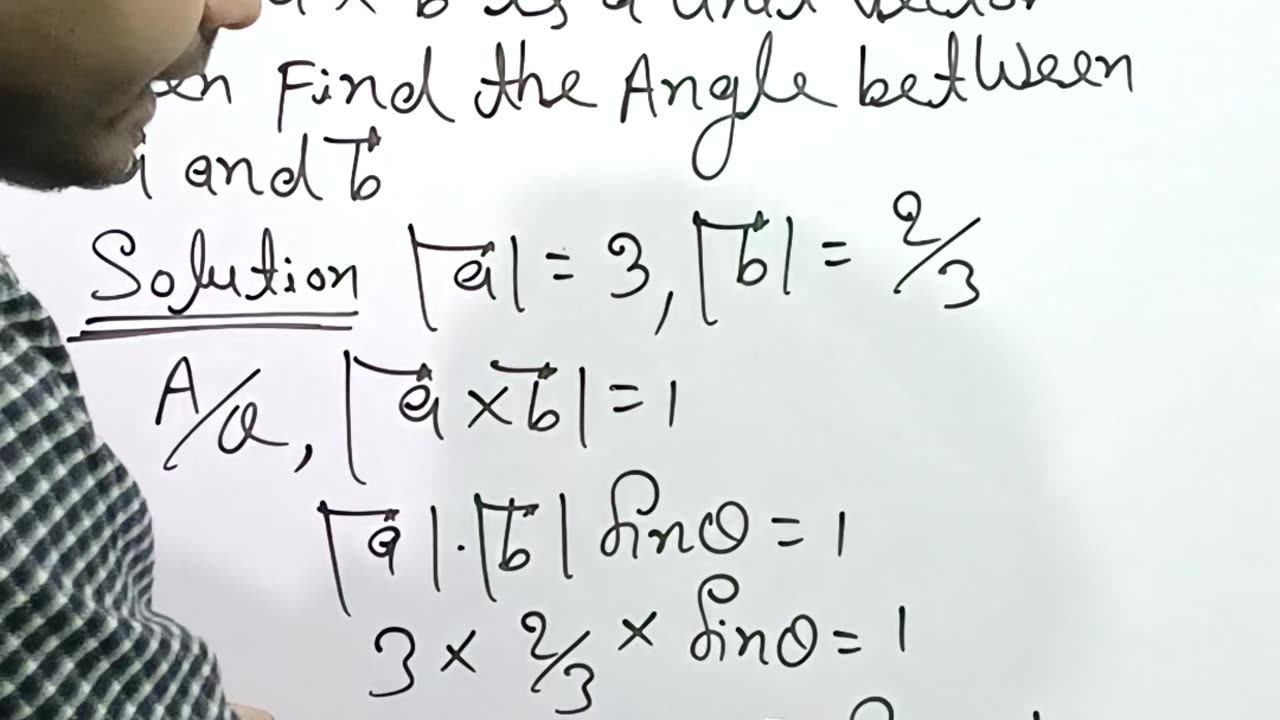 × b is a unit vector
Find the Angle between
and b⃗
Solution |a⃗| = 3, |b⃗| = 2/3
A/Q, |a⃗ × b⃗| = 1
|a⃗|·|b⃗| Sinθ = 1
3 × 2/3 × Sinθ = 1